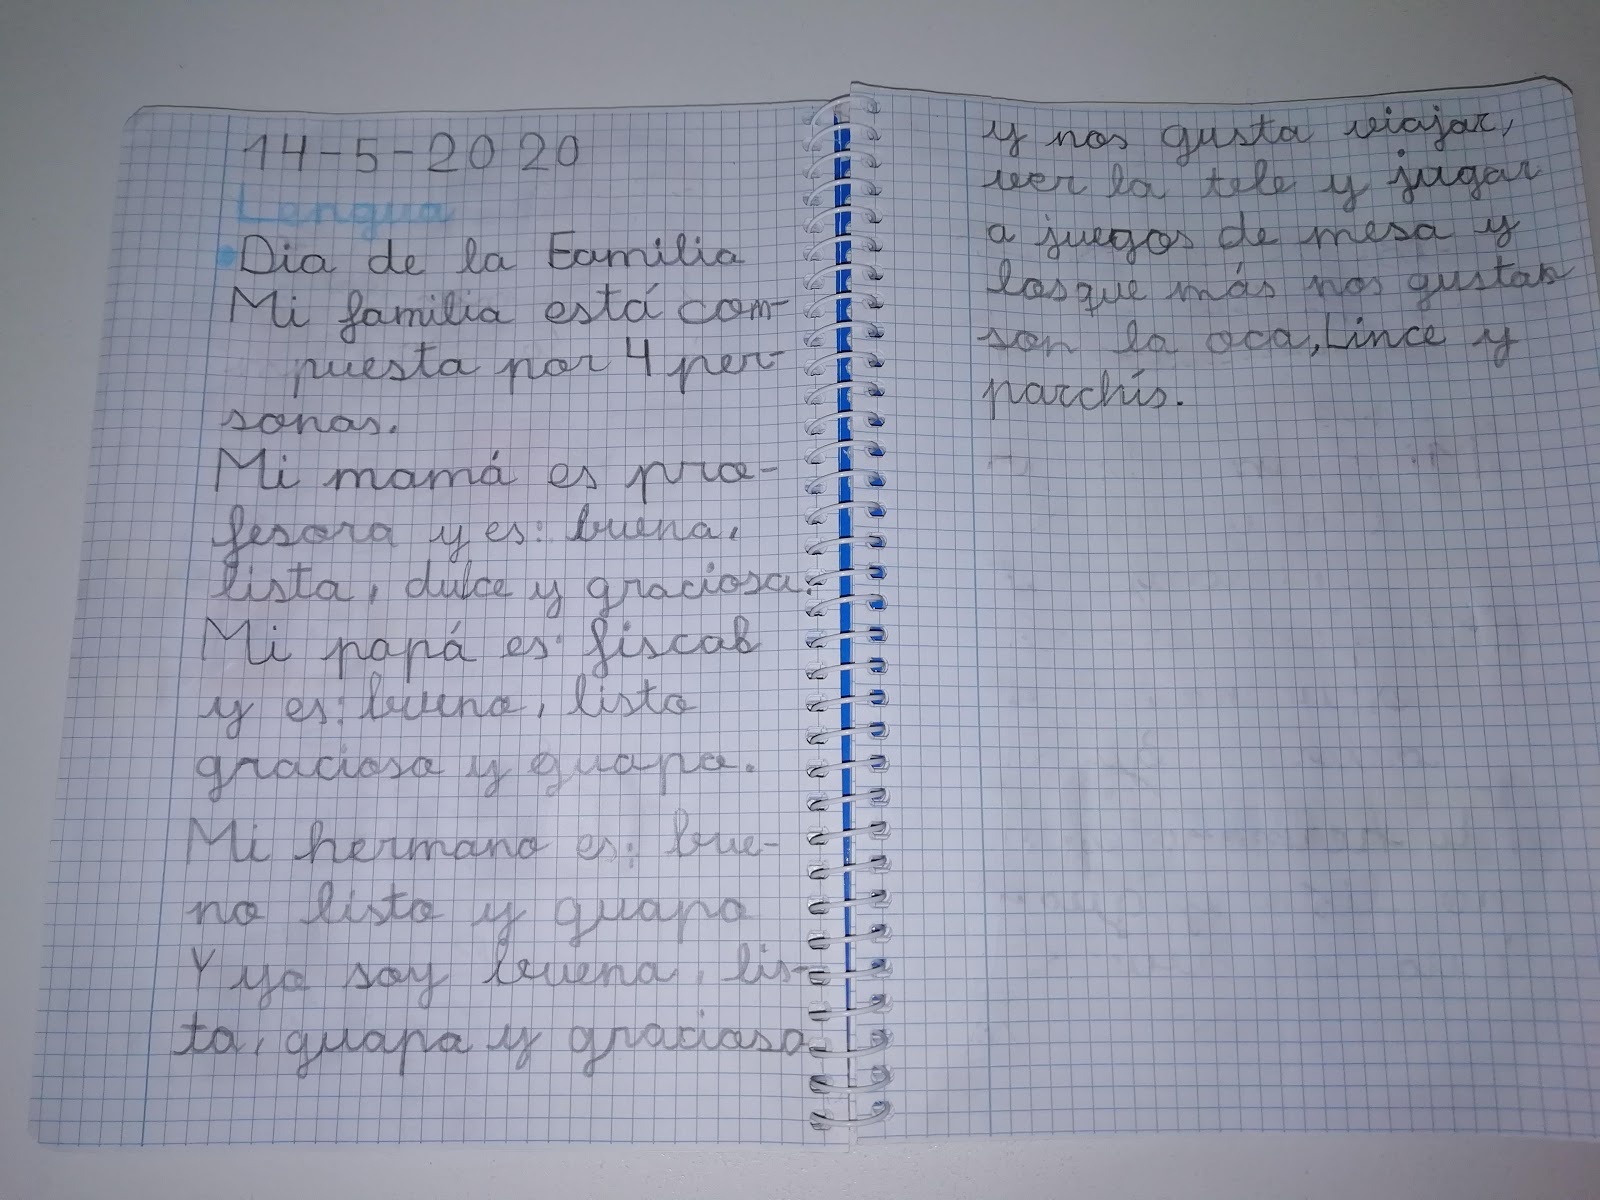 14-5-2020
Lengua
Dia de la Familia
Mi familia está com-
puesta por 4 per-
sonas.
Mi mamá es pro-
fesora y es: buena,
lista, dulce y graciosa.
Mi papá es fiscal
y es: bueno, listo
gracioso y guapo.
Mi hermano es: bue-
no listo y guapo
Y yo soy buena, lis-
ta, guapa y graciosa
y nos gusta viajar,
ver la tele y jugar
a juegos de mesa y
los que más nos gustan
son la oca, Lince y
parchís.